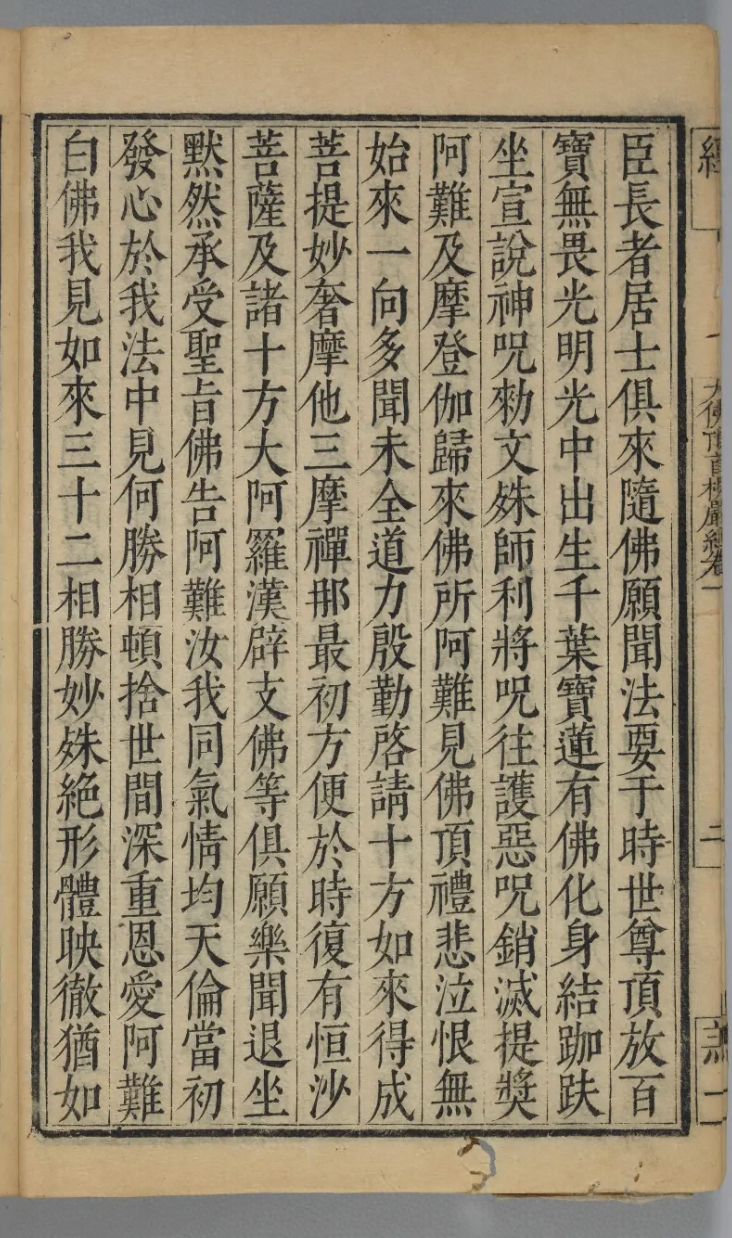 臣長者居士俱來隨佛願聞法要于時世尊頂放百
寶無畏光明光中出生千葉寶蓮有佛化身結跏趺
坐宣說神呪勑文殊師利將呪往護惡呪銷滅提獎
阿難及摩登伽歸來佛所阿難見佛頂禮悲泣恨無
始來一向多聞未全道力殷勤啓請十方如來得成
菩提妙奢摩他三摩禪那最初方便於時復有恒沙
菩薩及諸十方大阿羅漢辟支佛等俱願樂聞退坐
默然承受聖旨佛告阿難汝我同氣情均天倫當初
發心於我法中見何勝相頓捨世間深重恩愛阿難
白佛我見如來三十二相勝妙姝絕形體映徹猶如
大佛頂首楞嚴經卷一
二